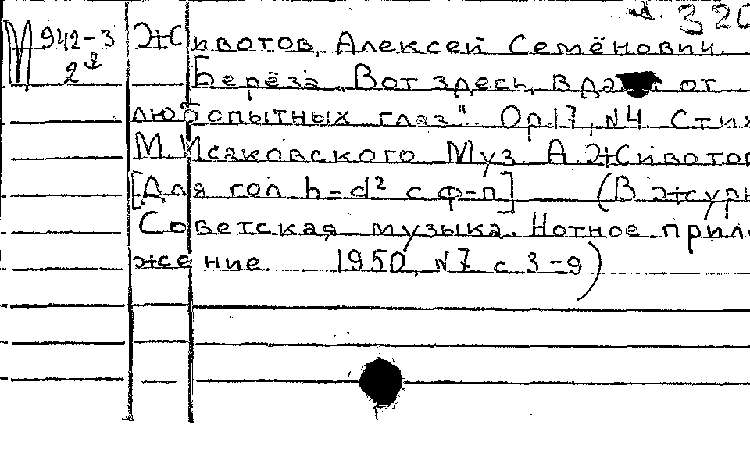 326
М 942-3 Животов, Алексей Семёнович.
2² Берёза „Вот здесь, вдали от
любопытных глаз". Ор 17, №4 Стих
М. Исаковского Муз А. Животов
[Для гол h-d² с ф-п] (В журн
Советская музыка. Нотное прило
жение 1950, №7 с 3-9)